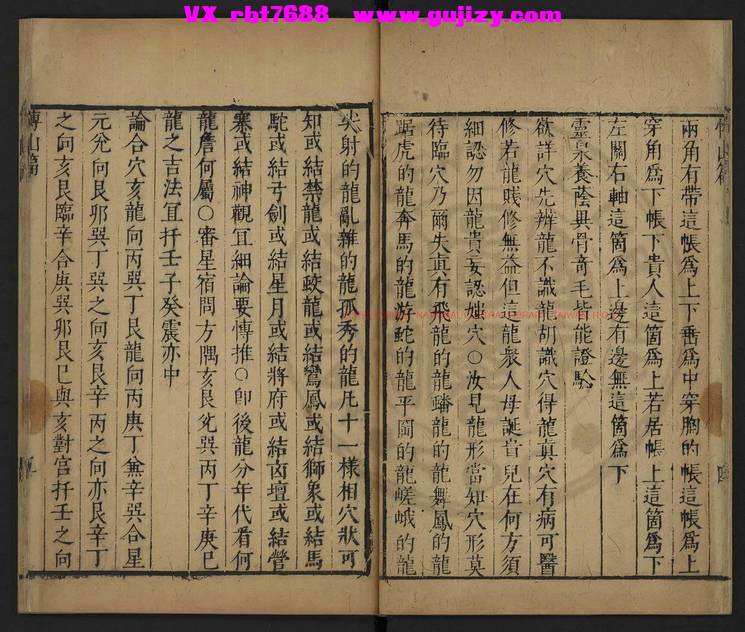 VX rbt7688 www.gujizy.com
兩角有帶這帳爲上下垂爲中穿胸的帳這帳爲上
穿角爲下帳下貴人這箇爲上若居帳上這箇爲下
左關右軸這箇爲上邊有邊無這箇爲下
靈泉養蔭異骨奇毛皆能證驗
欲詳穴先辨龍不識龍胡識穴得龍眞穴有病可醫
修若龍賤修無益但這龍衆人母誕嘗兒在何方須
細認勿因龍貴妄認𣲖穴○汝見龍形當知穴形莫
待臨穴乃爾失真有飛龍的龍蟠龍的龍舞鳳的龍
踞虎的龍奔馬的龍游蛇的龍平岡的龍嵯峨的龍
尖射的龍亂雜的龍孤秀的龍凡十一樣相穴狀可
知或結禁龍或結政龍或結鸞鳳或結獅象或結馬
駝或結弓劍或結星月或結將府或結壇或結營
寨或結神觀冝細論要慱推○卽後龍分年代看何
龍詹何屬○審星宿問方隅亥艮兊巽丙丁辛庚巳
龍之吉法冝扦壬子癸震亦中
論合穴亥龍向丙巽丁艮龍向丙庚丁兼辛巽合星
元兊向艮卯巽丁巽之向亥艮辛丙之向亦艮辛丁
之向亥艮臨辛合庚巽卯艮巳與亥對宫扦壬之向
慱山篇